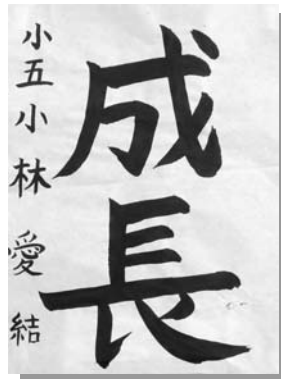 成長
小五小林愛結